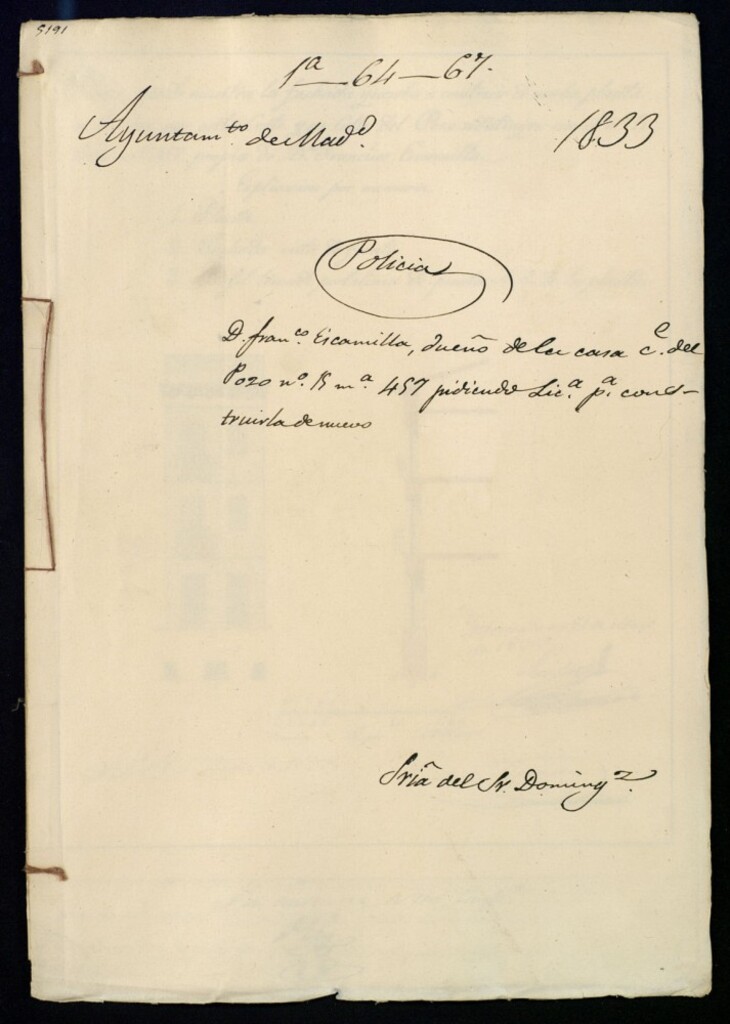 5191
1ª—64—67.
Ayuntam.to de Mad.d 1833
Policia
D. fran.co Escamilla, dueño de la casa C.e del
Pozo n.o 15 m.a 457 pidiendo Lic.a p.a cons-
truirla de nuevo
Sría del Sr. Doming.z